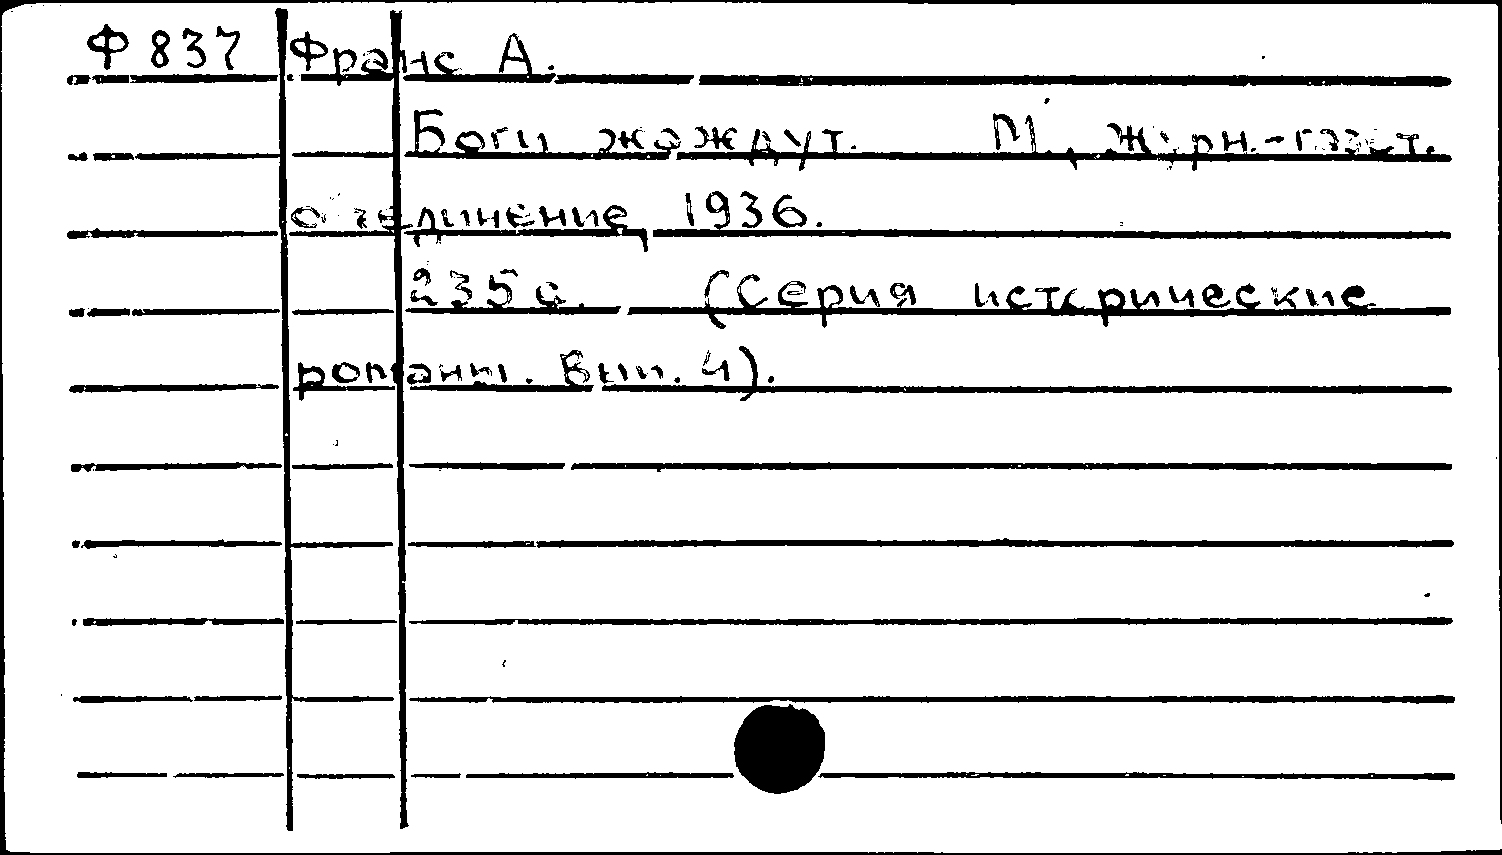 Ф 837 Франс А.
Боги жаждут. М., Журн.-газет.
объединение, 1936.
235 с. (Серия исторические
романы. Вып. 4).